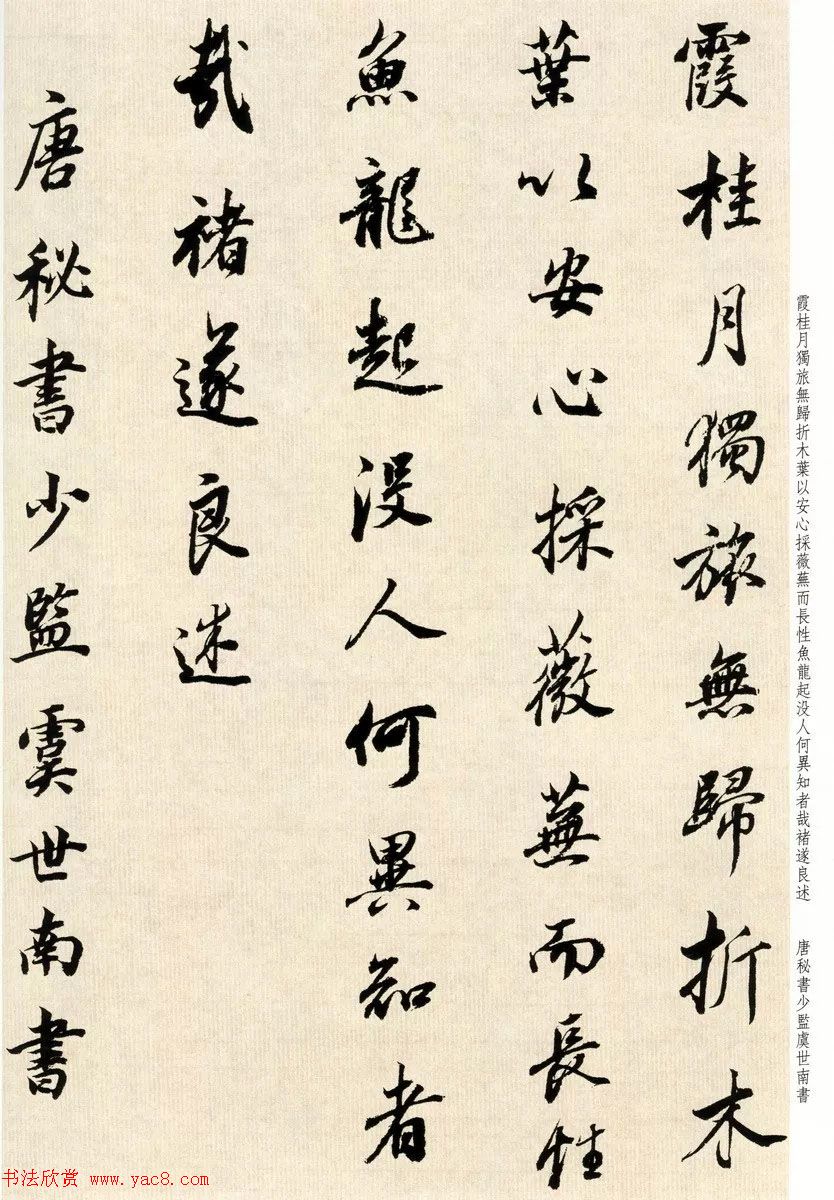 霞桂月獨旅無歸折木
葉以安心採薇蕪而長性
魚龍起没人何異知者
哉褚遂良述
唐秘書少監虞世南書
霞桂月獨旅無歸折木葉以安心採薇蕪而長性魚龍起没人何異知者哉褚遂良述 唐秘書少監虞世南書
书法欣赏 www.yac8.com